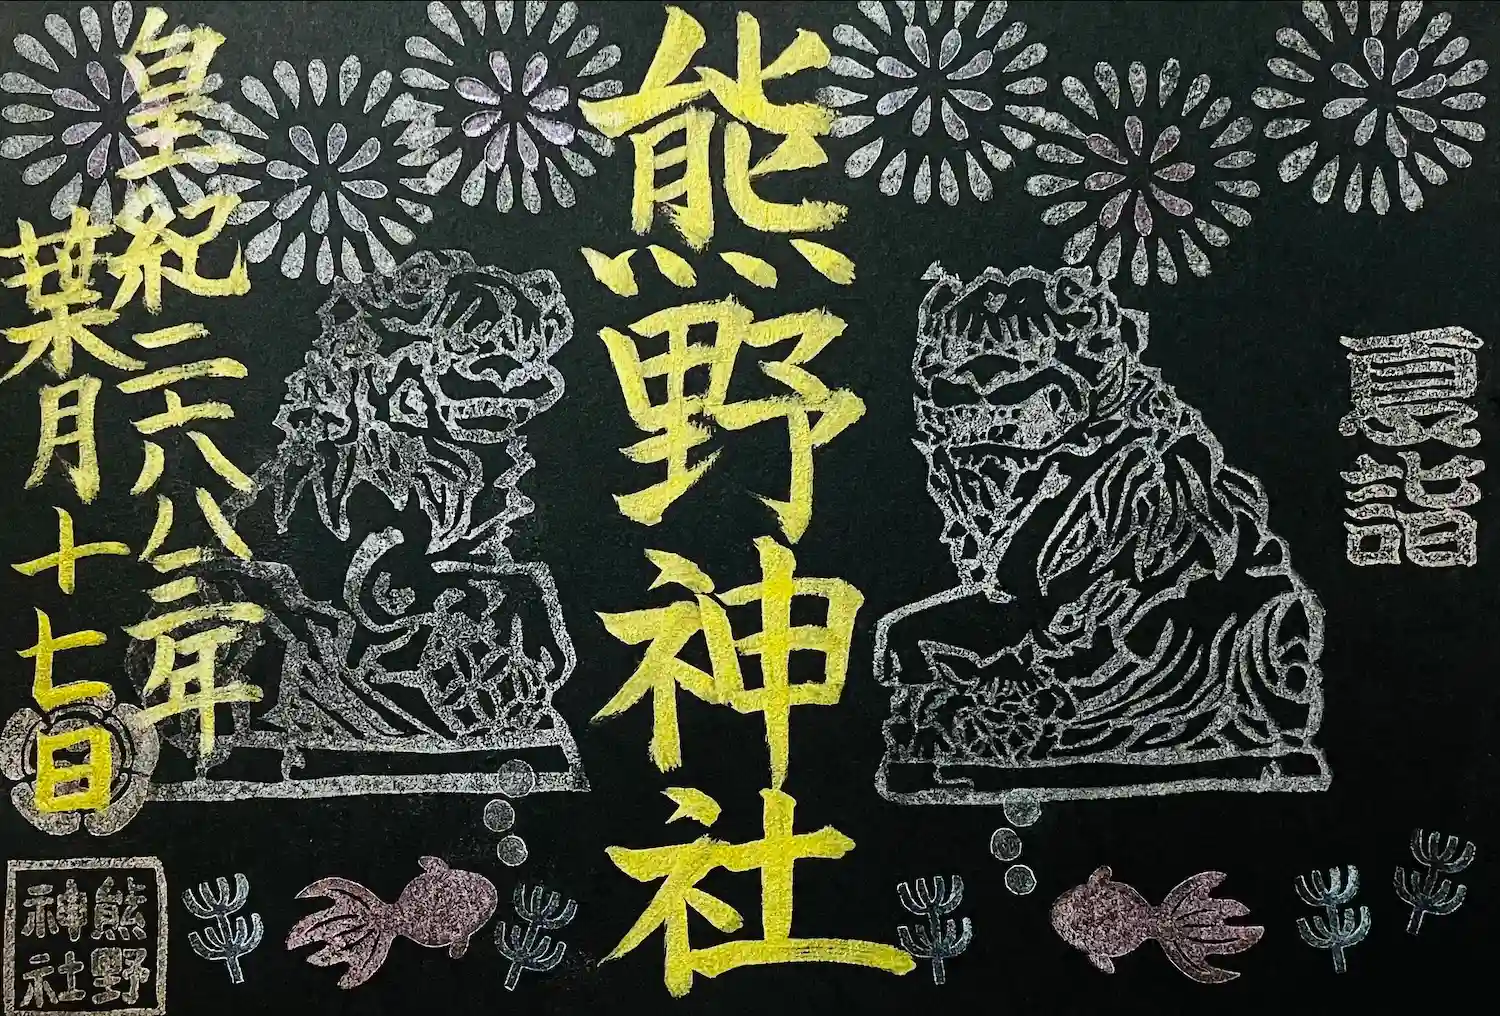 夏詣
熊野神社
皇紀二六八二年
葉月十七日
熊野
神社